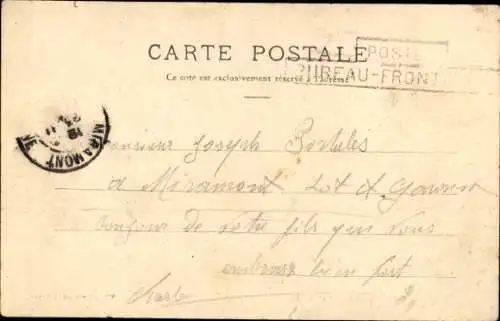 CARTE POSTALE
Ce côté est exclusivement réservé à l'adresse
POSTE
BUREAU-FRONT
MIRAMONT
Monsieur Joseph
a Miramont Lot et Garonne
bonjour de votre fils que vous
embrasse bien fort
Charle